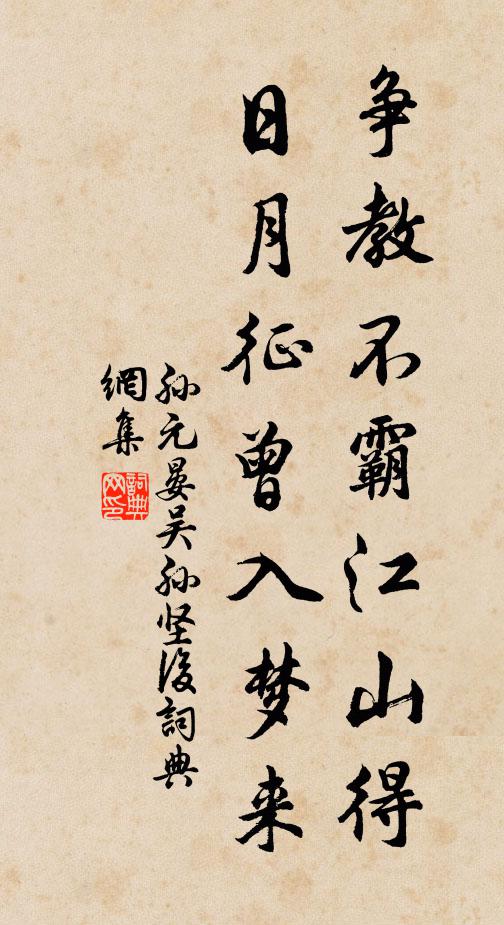 争教不霸江山得
日月征曾入梦来
孙元晏吴孙坚后詞典
網集
詞典
网印